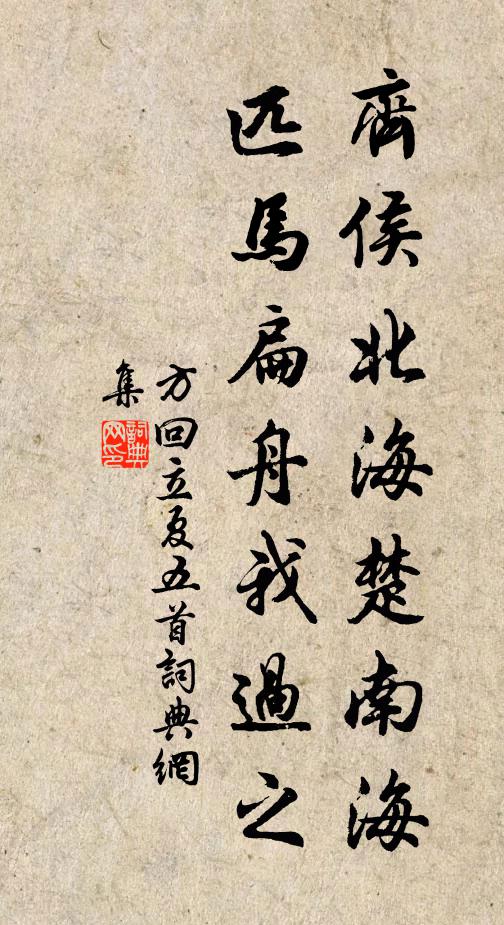 齊侯北海楚南海
匹馬扁舟我過之
方回立夏五首詞典網
集
詞典
网印